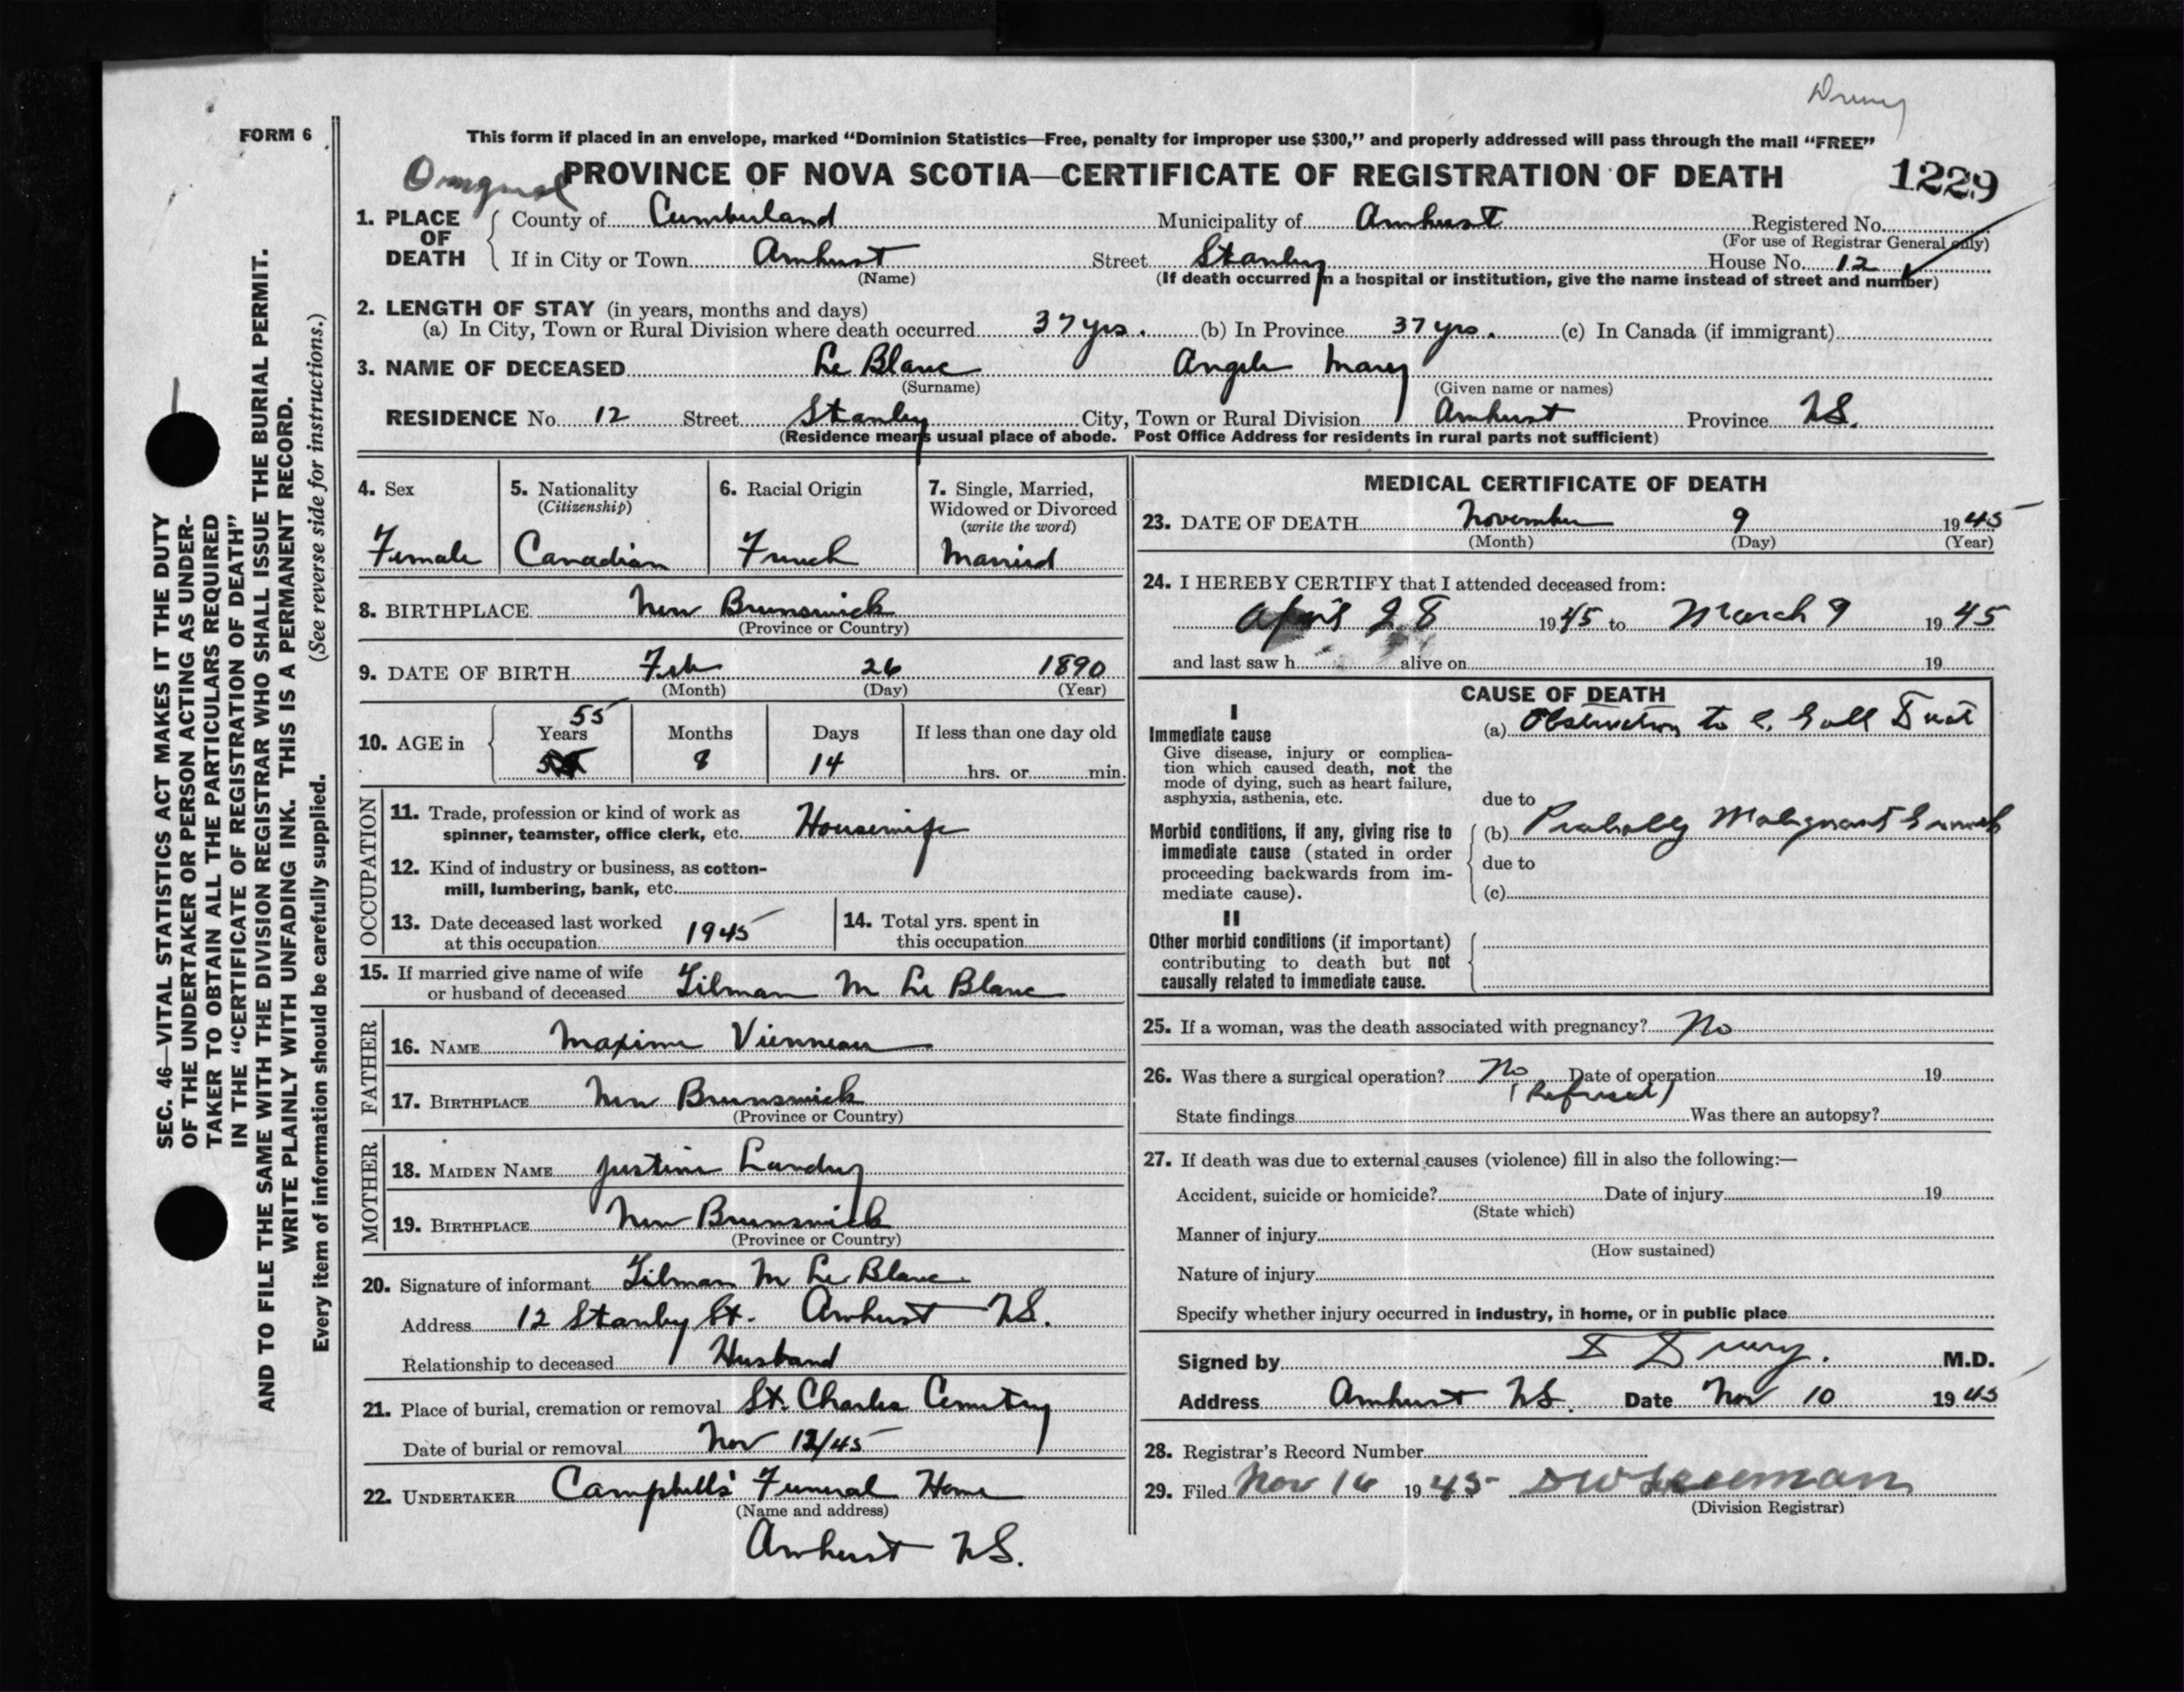 Drury
FORM 6
This form if placed in an envelope, marked "Dominion Statistics—Free, penalty for improper use $300," and properly addressed will pass through the mail "FREE"
PROVINCE OF NOVA SCOTIA—CERTIFICATE OF REGISTRATION OF DEATH
1229
1. PLACE OF DEATH
County of Cumberland Municipality of Amherst Registered No.
(For use of Registrar General only)
If in City or Town Amherst Street Stanley House No. 12
(Name) (If death occurred in a hospital or institution, give the name instead of street and number)
2. LENGTH OF STAY (in years, months and days)
(a) In City, Town or Rural Division where death occurred 37 yrs. (b) In Province 37 yrs. (c) In Canada (if immigrant)
3. NAME OF DECEASED Le Blanc Angele Mary
(Surname) (Given name or names)
RESIDENCE No. 12 Street Stanley City, Town or Rural Division Amherst Province N.S.
(Residence means usual place of abode. Post Office Address for residents in rural parts not sufficient)
4. Sex
Female
5. Nationality
(Citizenship)
Canadian
6. Racial Origin
French
7. Single, Married,
Widowed or Divorced
(write the word)
Married
8. BIRTHPLACE New Brunswick
(Province or Country)
9. DATE OF BIRTH Feb 26 1890
(Month) (Day) (Year)
10. AGE in
55
Years Months Days If less than one day old
8 14 hrs. or min.
OCCUPATION
11. Trade, profession or kind of work as
spinner, teamster, office clerk, etc. Housewife
12. Kind of industry or business, as cotton-
mill, lumbering, bank, etc.
13. Date deceased last worked
at this occupation 1945
14. Total yrs. spent in
this occupation
15. If married give name of wife
or husband of deceased Tilman M Le Blanc
FATHER
16. NAME Maxime Vienneau
17. BIRTHPLACE New Brunswick
(Province or Country)
MOTHER
18. MAIDEN NAME Justine Landry
19. BIRTHPLACE New Brunswick
(Province or Country)
20. Signature of informant Tilman M Le Blanc
Address 12 Stanley St. Amherst N.S.
Relationship to deceased Husband
21. Place of burial, cremation or removal St. Charles Cemetry
Date of burial or removal Nov 12/45
22. UNDERTAKER Campbells' Funeral Home
(Name and address)
Amherst N.S.
MEDICAL CERTIFICATE OF DEATH
23. DATE OF DEATH November 9 1945
(Month) (Day) (Year)
24. I HEREBY CERTIFY that I attended deceased from:
April 28 1945 to March 9 1945
and last saw h alive on 19
CAUSE OF DEATH
I
Immediate cause
Give disease, injury or complica-
tion which caused death, not the
mode of dying, such as heart failure,
asphyxia, asthenia, etc.
(a) Obstruction to C. Gall Duct
due to
Morbid conditions, if any, giving rise to
immediate cause (stated in order
proceeding backwards from im-
mediate cause).
(b) Probably Malignant Growth
due to
(c)
II
Other morbid conditions (if important)
contributing to death but not
causally related to immediate cause.
25. If a woman, was the death associated with pregnancy? No
26. Was there a surgical operation? No Date of operation 19
(Refused)
State findings Was there an autopsy?
27. If death was due to external causes (violence) fill in also the following:—
Accident, suicide or homicide? Date of injury 19
(State which)
Manner of injury
(How sustained)
Nature of injury
Specify whether injury occurred in industry, in home, or in public place
Signed by D Drury. M.D.
Address Amherst N.S. Date Nov 10 1945
28. Registrar's Record Number
29. Filed Nov 16 1945
(Division Registrar)
SEC. 46—VITAL STATISTICS ACT MAKES IT THE DUTY
OF THE UNDERTAKER OR PERSON ACTING AS UNDER-
TAKER TO OBTAIN ALL THE PARTICULARS REQUIRED
IN THE "CERTIFICATE OF REGISTRATION OF DEATH"
AND TO FILE THE SAME WITH THE DIVISION REGISTRAR WHO SHALL ISSUE THE BURIAL PERMIT.
WRITE PLAINLY WITH UNFADING INK. THIS IS A PERMANENT RECORD.
Every item of information should be carefully supplied. (See reverse side for instructions.)